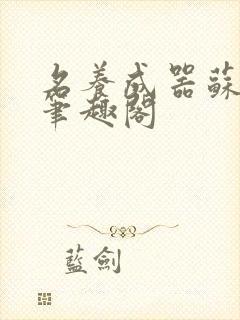 名養成器蘇
筆趣閣
藍劍